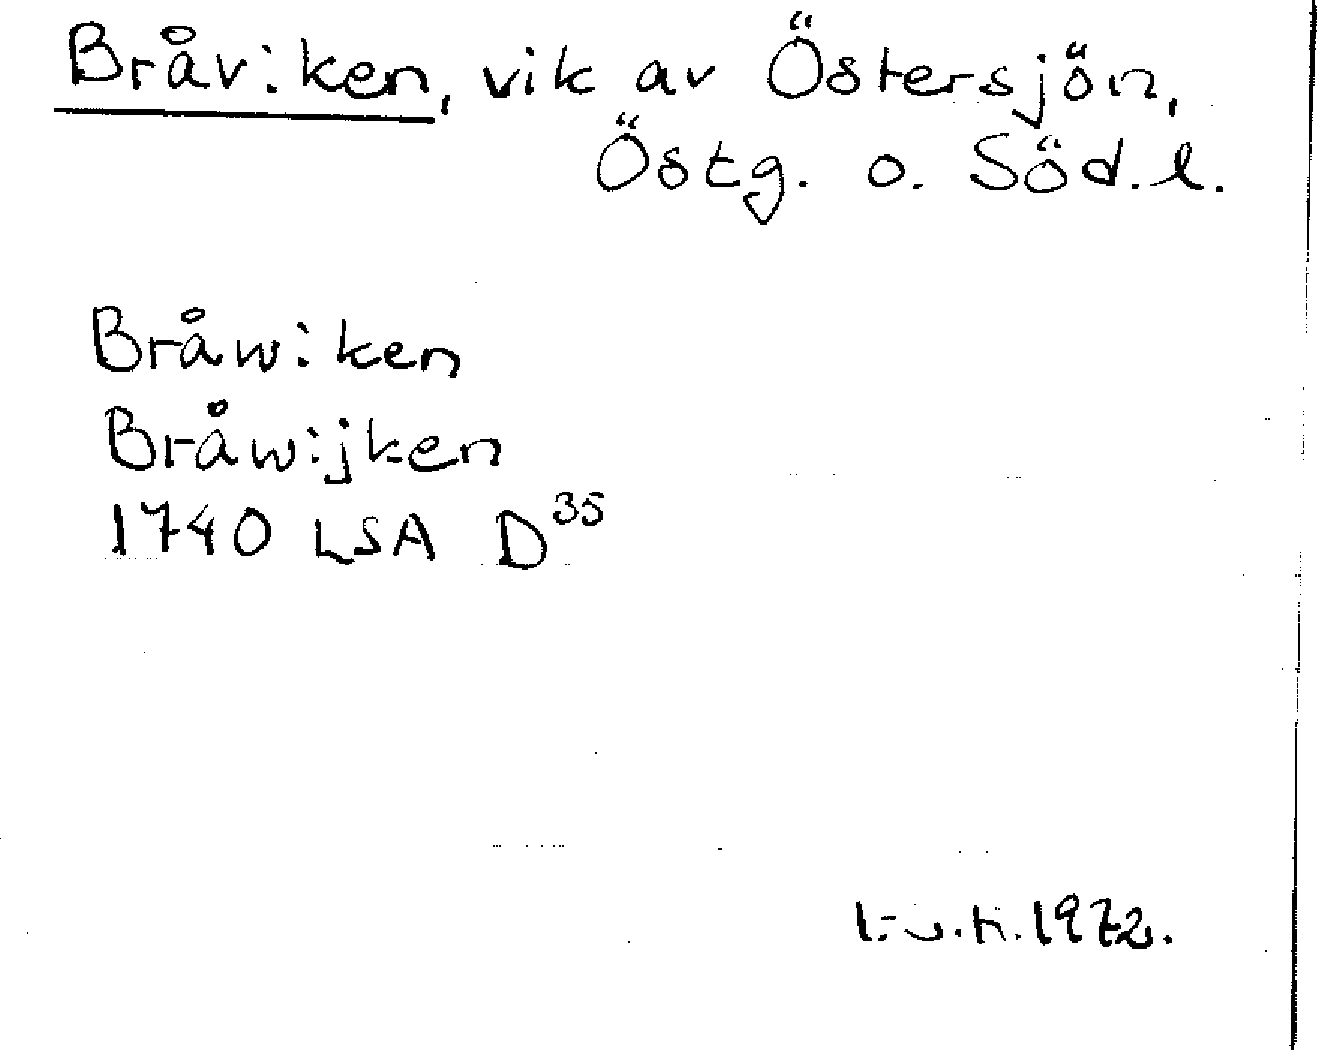 Bråviken, vik av Östersjön,
Östg. o. Söd.l.
Bråwiken
Bråwijken
1740 LSA D³⁵
1972.